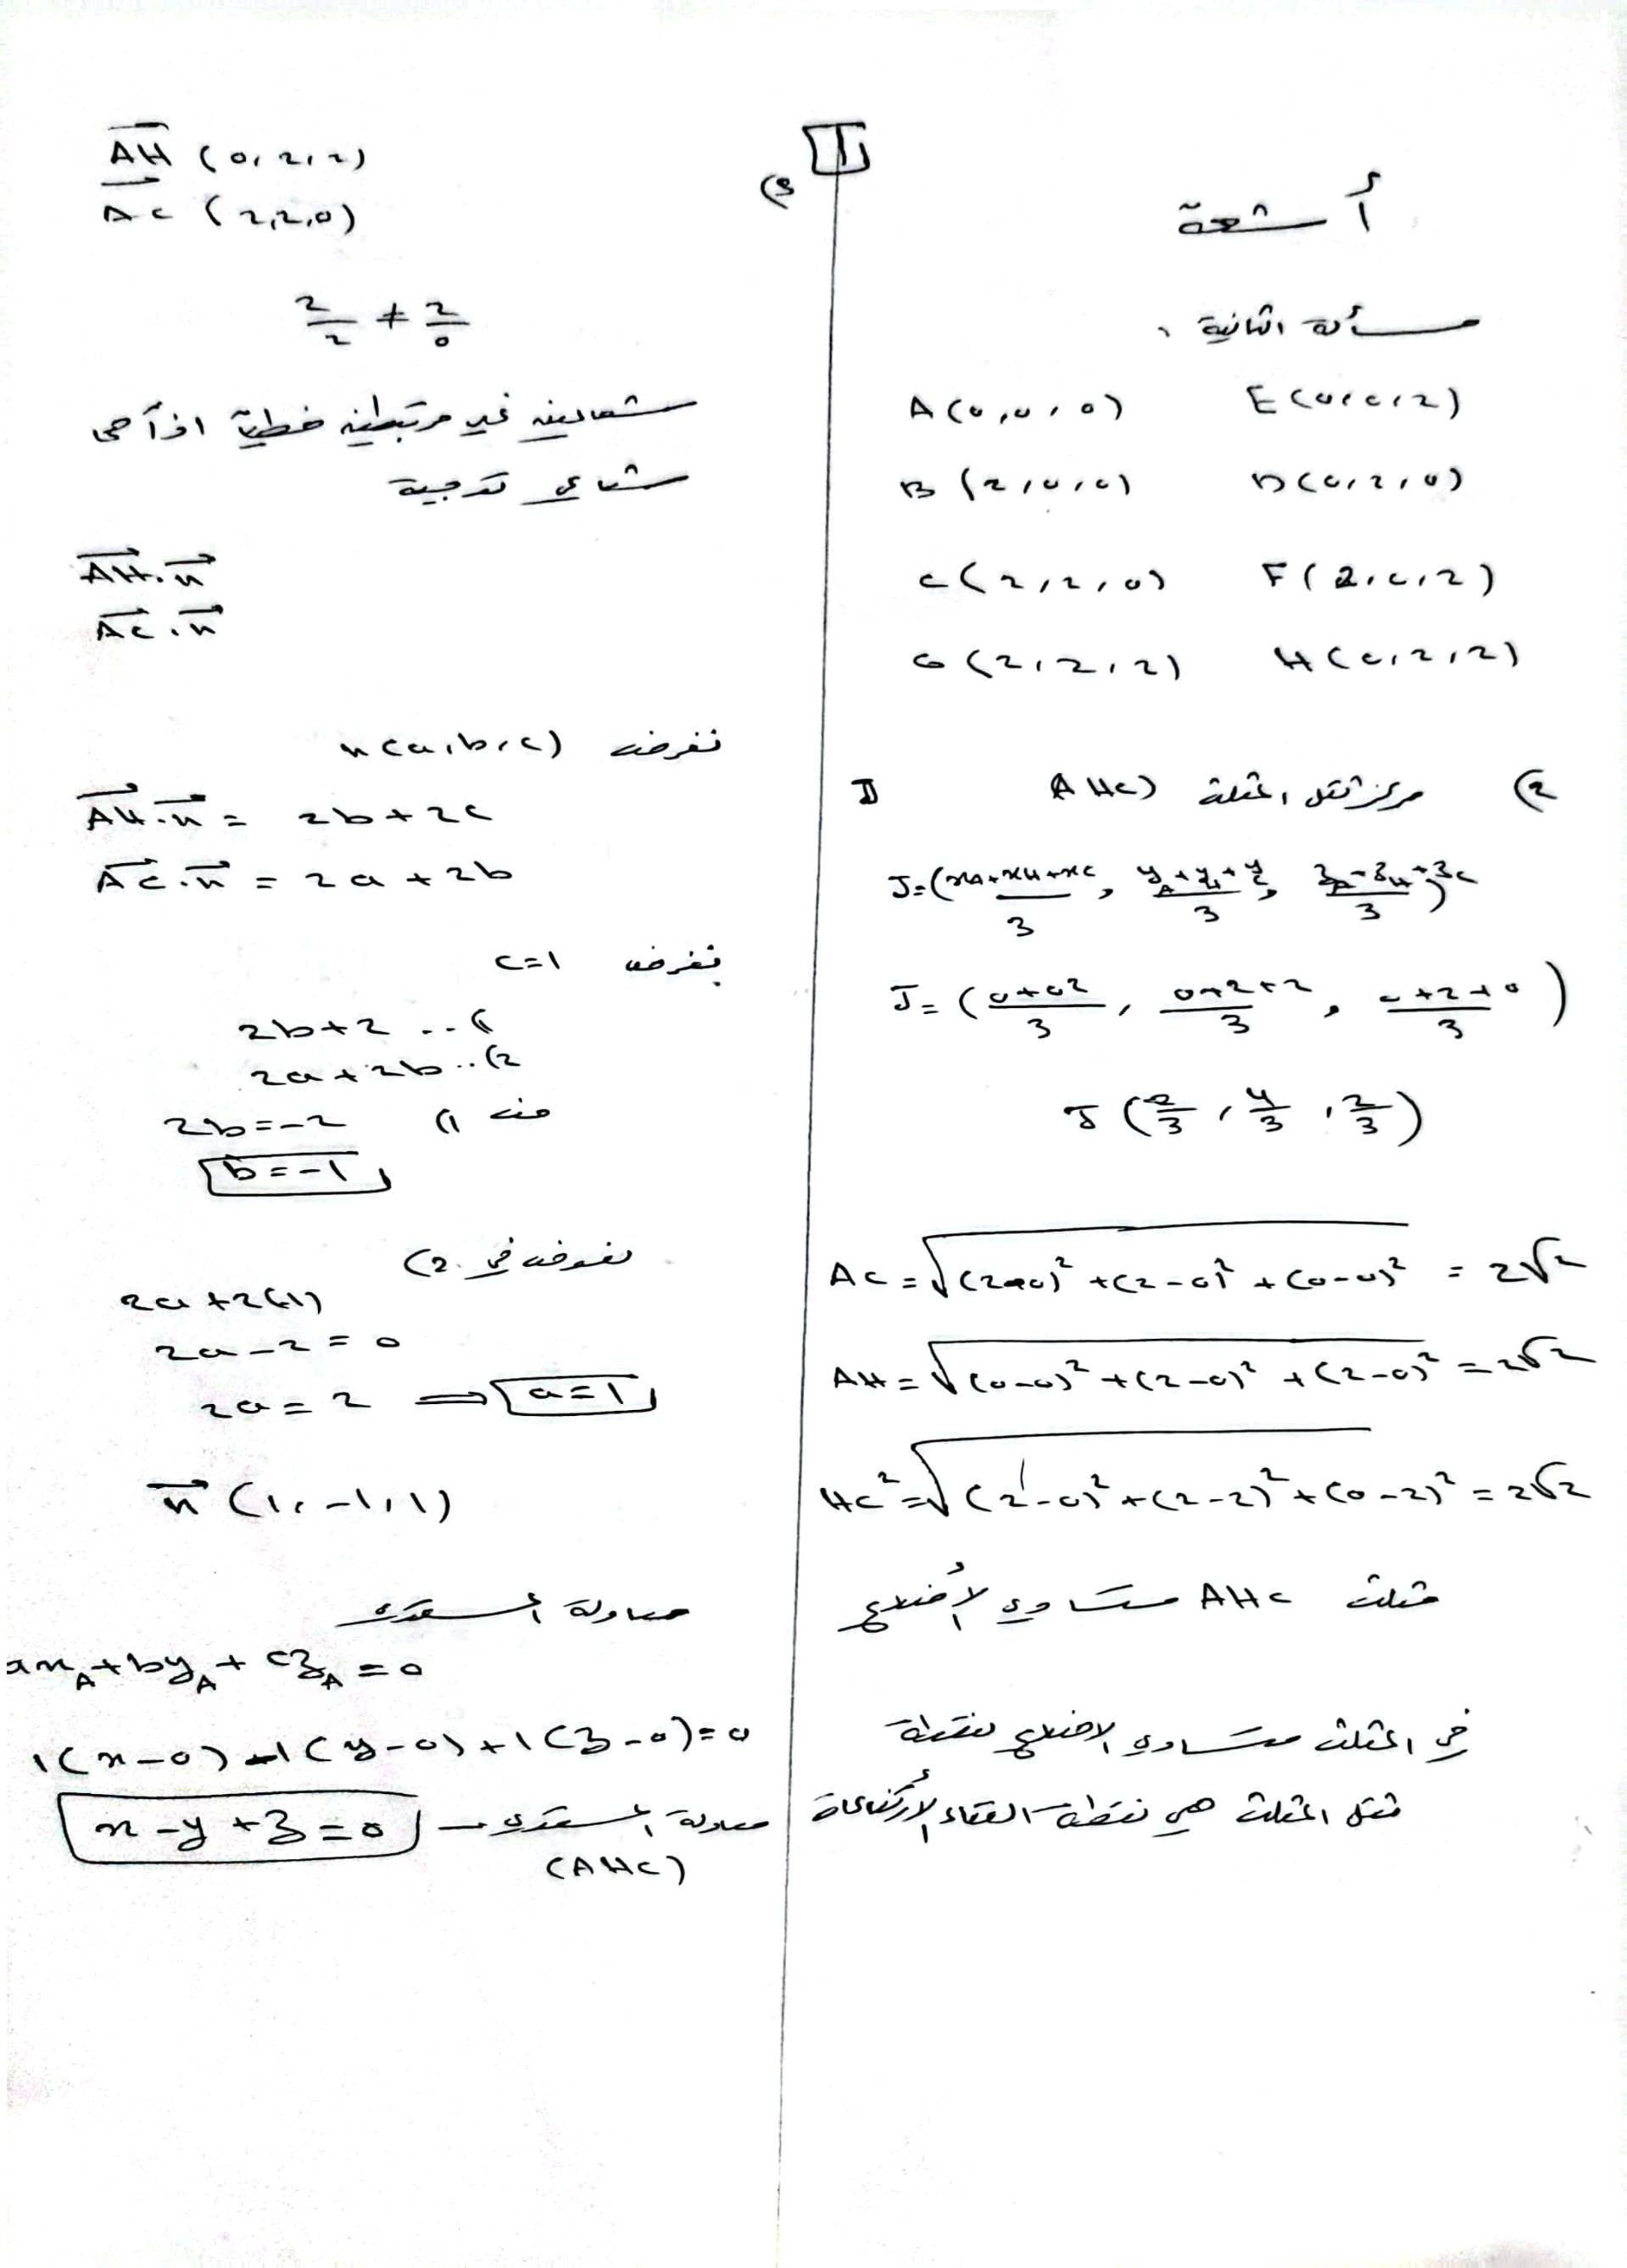 أشعة
مسألة الثانية :
A(0,0,0) E(0,0,2)
B(2,0,0) D(0,2,0)
C(2,2,0) F(2,0,2)
G(2,2,2) H(0,2,2)
2) مركز ثقل المثلث (AHC J
J=(xA+xH+xC/3, yA+yH+yC/3, zA+zH+zC/3)
J=(0+02/3, 0+2+2/3, 0+2+0/3)
J(2/3, 4/3, 2/3)
AC=√(2-0)²+(2-0)²+(0-0)² = 2√2
AH=√(0-0)²+(2-0)²+(2-0)² = 2√2
HC²=√(2-0)²+(2-2)²+(0-2)² = 2√2
مثلث AHC متساوي الأضلاع
في المثلث متساوي الاضلاع نقطة
ثقل المثلث هي نقطة التقاء الأرتفاعات
AH (0,2,2)
AC (2,2,0)
2/2 ≠ 2/0
شعاعين غير مرتبطين خطياً اذاً هما
شعاعي توجيه
AH.n
AC.n
نفرض n(a,b,c)
AH.n = 2b+2c
AC.n = 2a+2b
نفرض c=1
2b+2 ..(1
2a+2b..(2
من (1 2b=-2
b=-1
نعوض في (2
2a+2(-1)
2a-2=0
2a=2 ⟹ a=1
n (1,-1,1)
معادلة المستوي
axA+byA+czA=0
1(x-0)-1(y-0)+1(z-0)=0
x-y+z=0 → معادلة المستوي
(AHC)